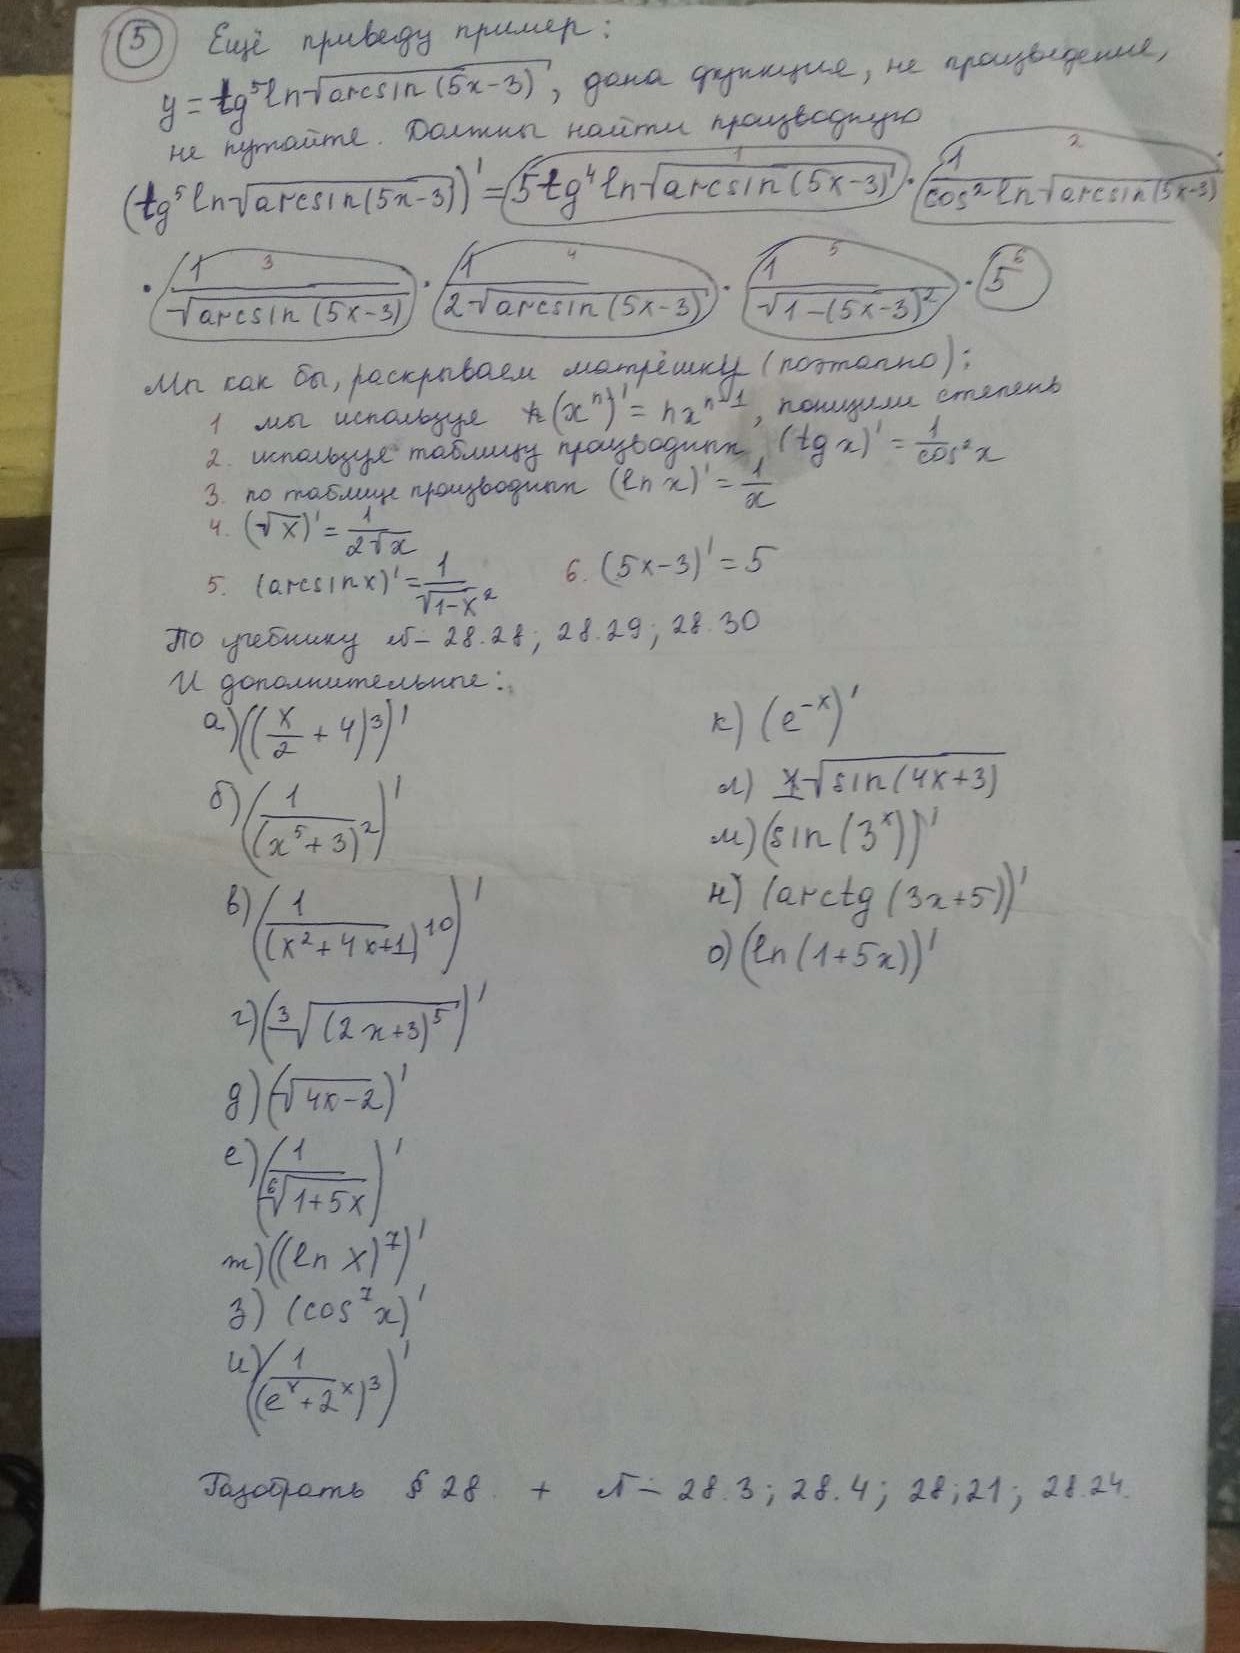 5 Ещё приведу пример:
y = tg⁵ln√(arcsin(5x-3)), дана функция, не произведение,
не путайте. Должны найти производную
(tg⁵ln√(arcsin(5x-3)))' = 5tg⁴ln√(arcsin(5x-3)) · 1/(cos²ln√(arcsin(5x-3)))
1 2
· 1/√(arcsin(5x-3)) · 1/(2√(arcsin(5x-3))) · 1/√(1-(5x-3)²) · 5
3 4 5 6
Мы как бы, раскрываем матрёшку (поэтапно):
1 мы используя (xⁿ)' = nxⁿ⁻¹, понизили степень
2. используя таблицу производных, (tg x)' = 1/cos²x
3. по таблице производных (ln x)' = 1/x
4. (√x)' = 1/(2√x)
5. (arcsin x)' = 1/√(1-x²) 6. (5x-3)' = 5
По учебнику № 28.28; 28.29; 28.30
И дополнительные:
а) ((x/2 + 4)³)'
б) (1/(x⁵+3)²)'
в) (1/(x²+4x+1)¹⁰)'
г) (³√((2x+3)⁵))'
д) (√(4x-2))'
е) (1/⁶√(1+5x))'
ж) ((ln x)⁷)'
з) (cos⁷x)'
и) (1/(eˣ+2ˣ)³)'
к) (e⁻ˣ)'
л) √(sin(4x+3))
м) (sin(3ˣ))'
н) (arctg(3x+5))'
о) (ln(1+5x))'
Разобрать § 28. + № 28.3; 28.4; 28;21; 28.24.